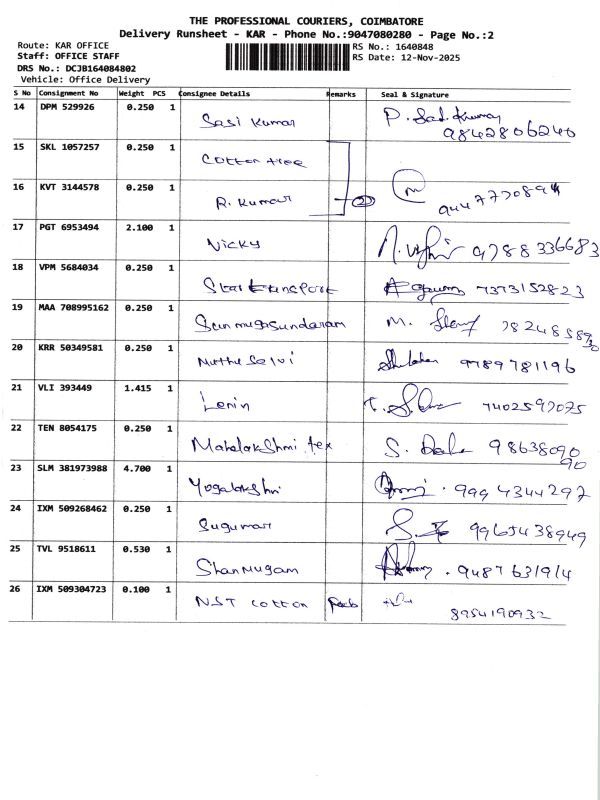 THE PROFESSIONAL COURIERS, COIMBATORE
Delivery Runsheet - KAR - Phone No.:9047080280 - Page No.:2
Route: KAR OFFICE RS No.: 1640848
Staff: OFFICE STAFF RS Date: 12-Nov-2025
DRS No.: DCJB164084802
Vehicle: Office Delivery
S No Consignment No Weight PCS Consignee Details Remarks Seal & Signature
14 DPM 529926 0.250 1 Sasi Kumar
9842806240
15 SKL 1057257 0.250 1 Cotton tree
16 KVT 3144578 0.250 1 R. Kumar 2
17 PGT 6953494 2.100 1 Nicky 9788336683
18 VPM 5684034 0.250 1 Star transport 7373152823
19 MAA 708995162 0.250 1 Sunmugasundaram M.
20 KRR 50349581 0.250 1 Muthu Selvi 9789781196
21 VLI 393449 1.415 1 Lenin 7402597075
22 TEN 8054175 0.250 1 Mahalakshmi tex S. 98638090
90
23 SLM 381973988 4.700 1 Yogalakshmi 9994344297
24 IXM 509268462 0.250 1 Sugumar 9965438949
25 TVL 9518611 0.530 1 Shanmugam 9487631914
26 IXM 509304723 0.100 1 NST cotton
8954190932